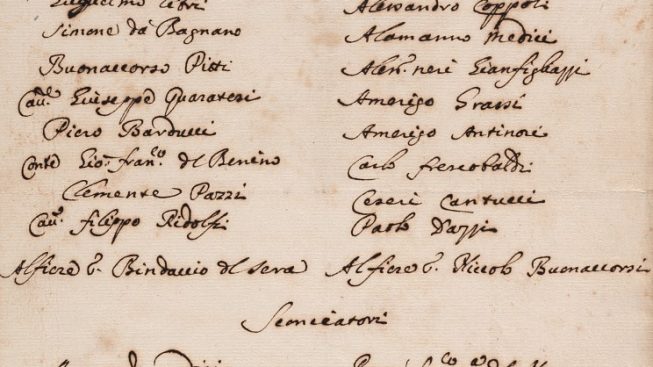 Guglielmo Alessandro Coppoli
Simone da Bagnano Alamanno Medici
Buonaccorso Pitti Aless. neri Gianfigliazzi
Cau.e Giuseppe Guaratesi Amerigo Grassi
Piero Barducci Amerigo Antinori
Conte Gio. fran.co del Benino Carlo frescobaldi
Clemente Pazzi Ceseri Cantucci
Cau.e filippo Ridolfi Paolo
Alfiere Bindaccio del sera Alfiere Niccolo Buonaccorsi
Sconciatori